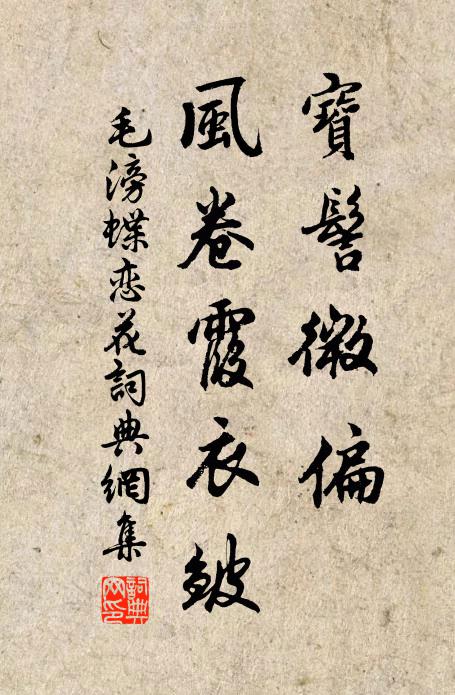 寶髻微偏
風卷霞衣皺
毛滂蝶恋花詞典網集
詞典網印